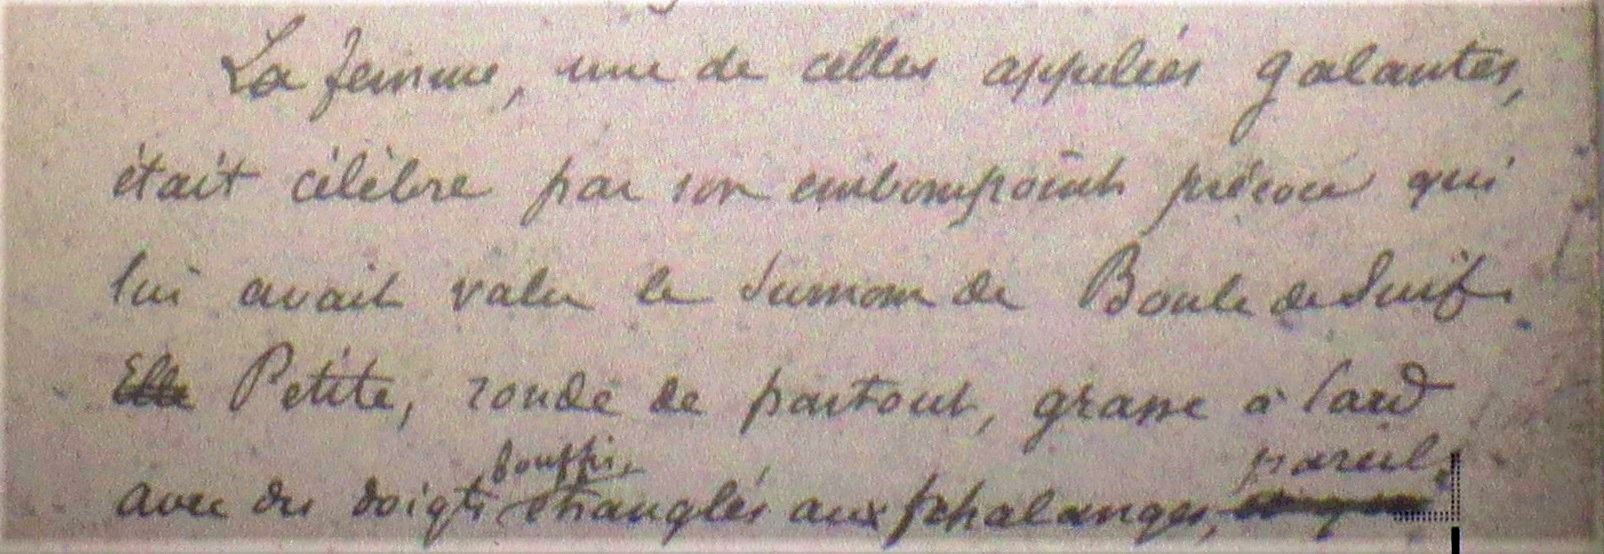 La femme, une de celles appelées galantes,
était célèbre par son embonpoint précoce qui
lui avait valu le surnom de Boule de Suif.
Elle Petite, ronde de partout, grasse à lard
bouffis pareils
avec des doigts étranglés aux phalanges,